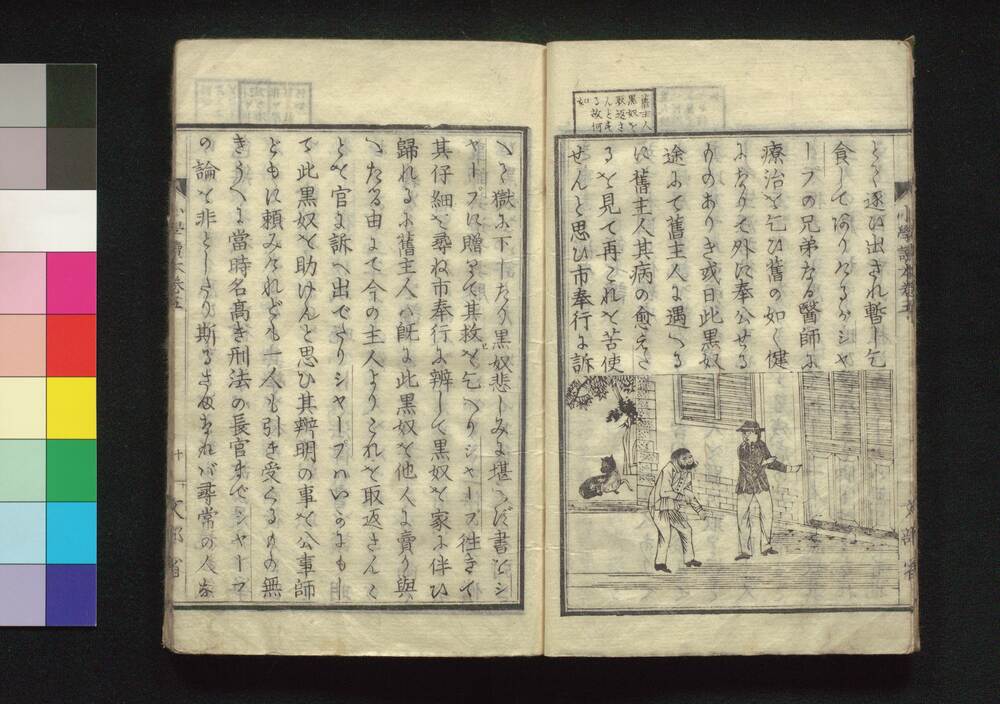 舊主人
黑奴を
取返さ
んとす
る故何
如
とて逐ひ出され暫し乞
食して在りけるがシヤ
ープの兄弟なる醫師に
療治を乞ひ舊の如く健
になりて外に奉公せる
ものありき或日此黑奴
途にて舊主人に遇へる
に舊主人其病の愈えた
るを見て再これを苦使
せんと思ひ市奉行に訴
小學讀本卷五
文部省
へて獄に下したり黑奴悲しみに堪へず書をシ
ャープに贈りて其救を乞へりシャープ往きて
其仔細を尋ね市奉行に辨して黑奴を家に伴ひ
歸れるに舊主人ハ既に此黑奴を他人に賣り與
へたる由にて今の主人よりこれを取返さんく
とを官に訴へ出でたりシャープハいかにもし
て此黑奴を助けんと思ひ其辨明の事を公事師
どもに頼みけれども一人も引き受くるもの無
きうへに當時名高き刑法の長官までシャープ
の論を非としたり斯るさまなれバ尋常の人な
小學讀本卷五
十
文部省